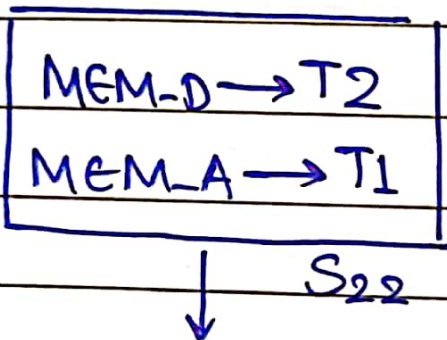 MEM_D → T2
MEM_A → T1
S22